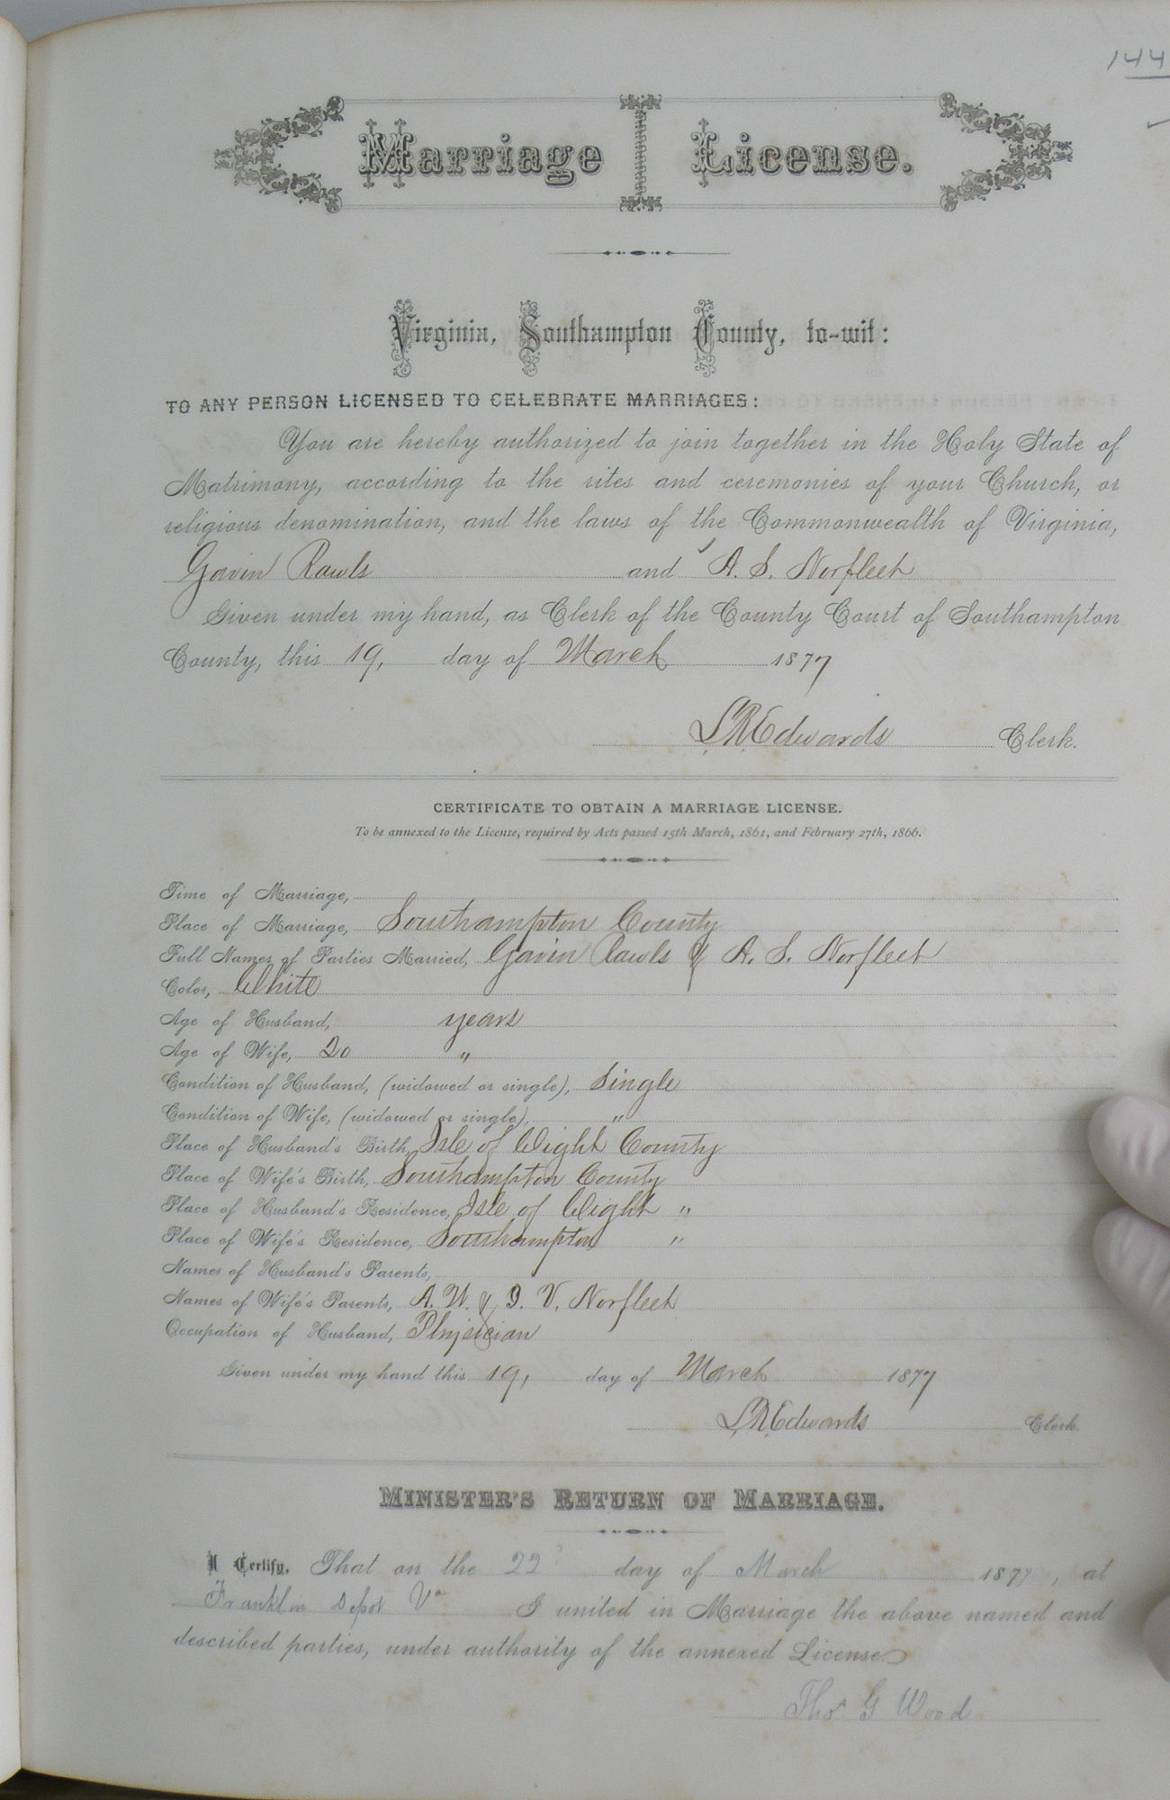 144
Marriage License.
Virginia, Southampton County, to-wit:
TO ANY PERSON LICENSED TO CELEBRATE MARRIAGES:
You are hereby authorized to join together in the Holy State of
Matrimony, according to the rites and ceremonies of your Church, or
religious denomination, and the laws of the Commonwealth of Virginia,
Gavin Rawls and A. S. Norfleet
Given under my hand, as Clerk of the County Court of Southampton
County, this 19, day of March 1877
L.R. Edwards Clerk.
CERTIFICATE TO OBTAIN A MARRIAGE LICENSE.
To be annexed to the License, required by Acts passed 15th March, 1861, and February 27th, 1866.
Time of Marriage,
Place of Marriage, Southampton County
Full Names of Parties Married, Gavin Rawls & A. S. Norfleet
Color, White
Age of Husband, years
Age of Wife, 20 "
Condition of Husband, (widowed or single), Single
Condition of Wife, (widowed or single), "
Place of Husband's Birth, Isle of Wight County
Place of Wife's Birth, Southampton County
Place of Husband's Residence, Isle of Wight "
Place of Wife's Residence, Southampton "
Names of Husband's Parents,
Names of Wife's Parents, A. W. & I. V. Norfleet
Occupation of Husband, Physician
Given under my hand this 19, day of March 1877
L.R. Edwards Clerk.
MINISTER'S RETURN OF MARRIAGE.
I Certify, That on the 22 day of March 1877, at
Franklin Depot Va I united in Marriage the above named and
described parties, under authority of the annexed License.
Thos G Wood